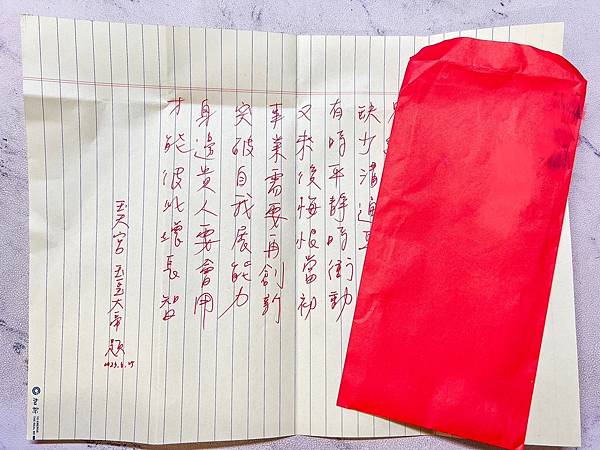 缺少溝通
有時平靜時衝動
又來後悔恨當初
事業需要再創新
突破自我展能力
身邊貴人要會用
才能彼此增長智
玉天宮 玉皇大帝 題